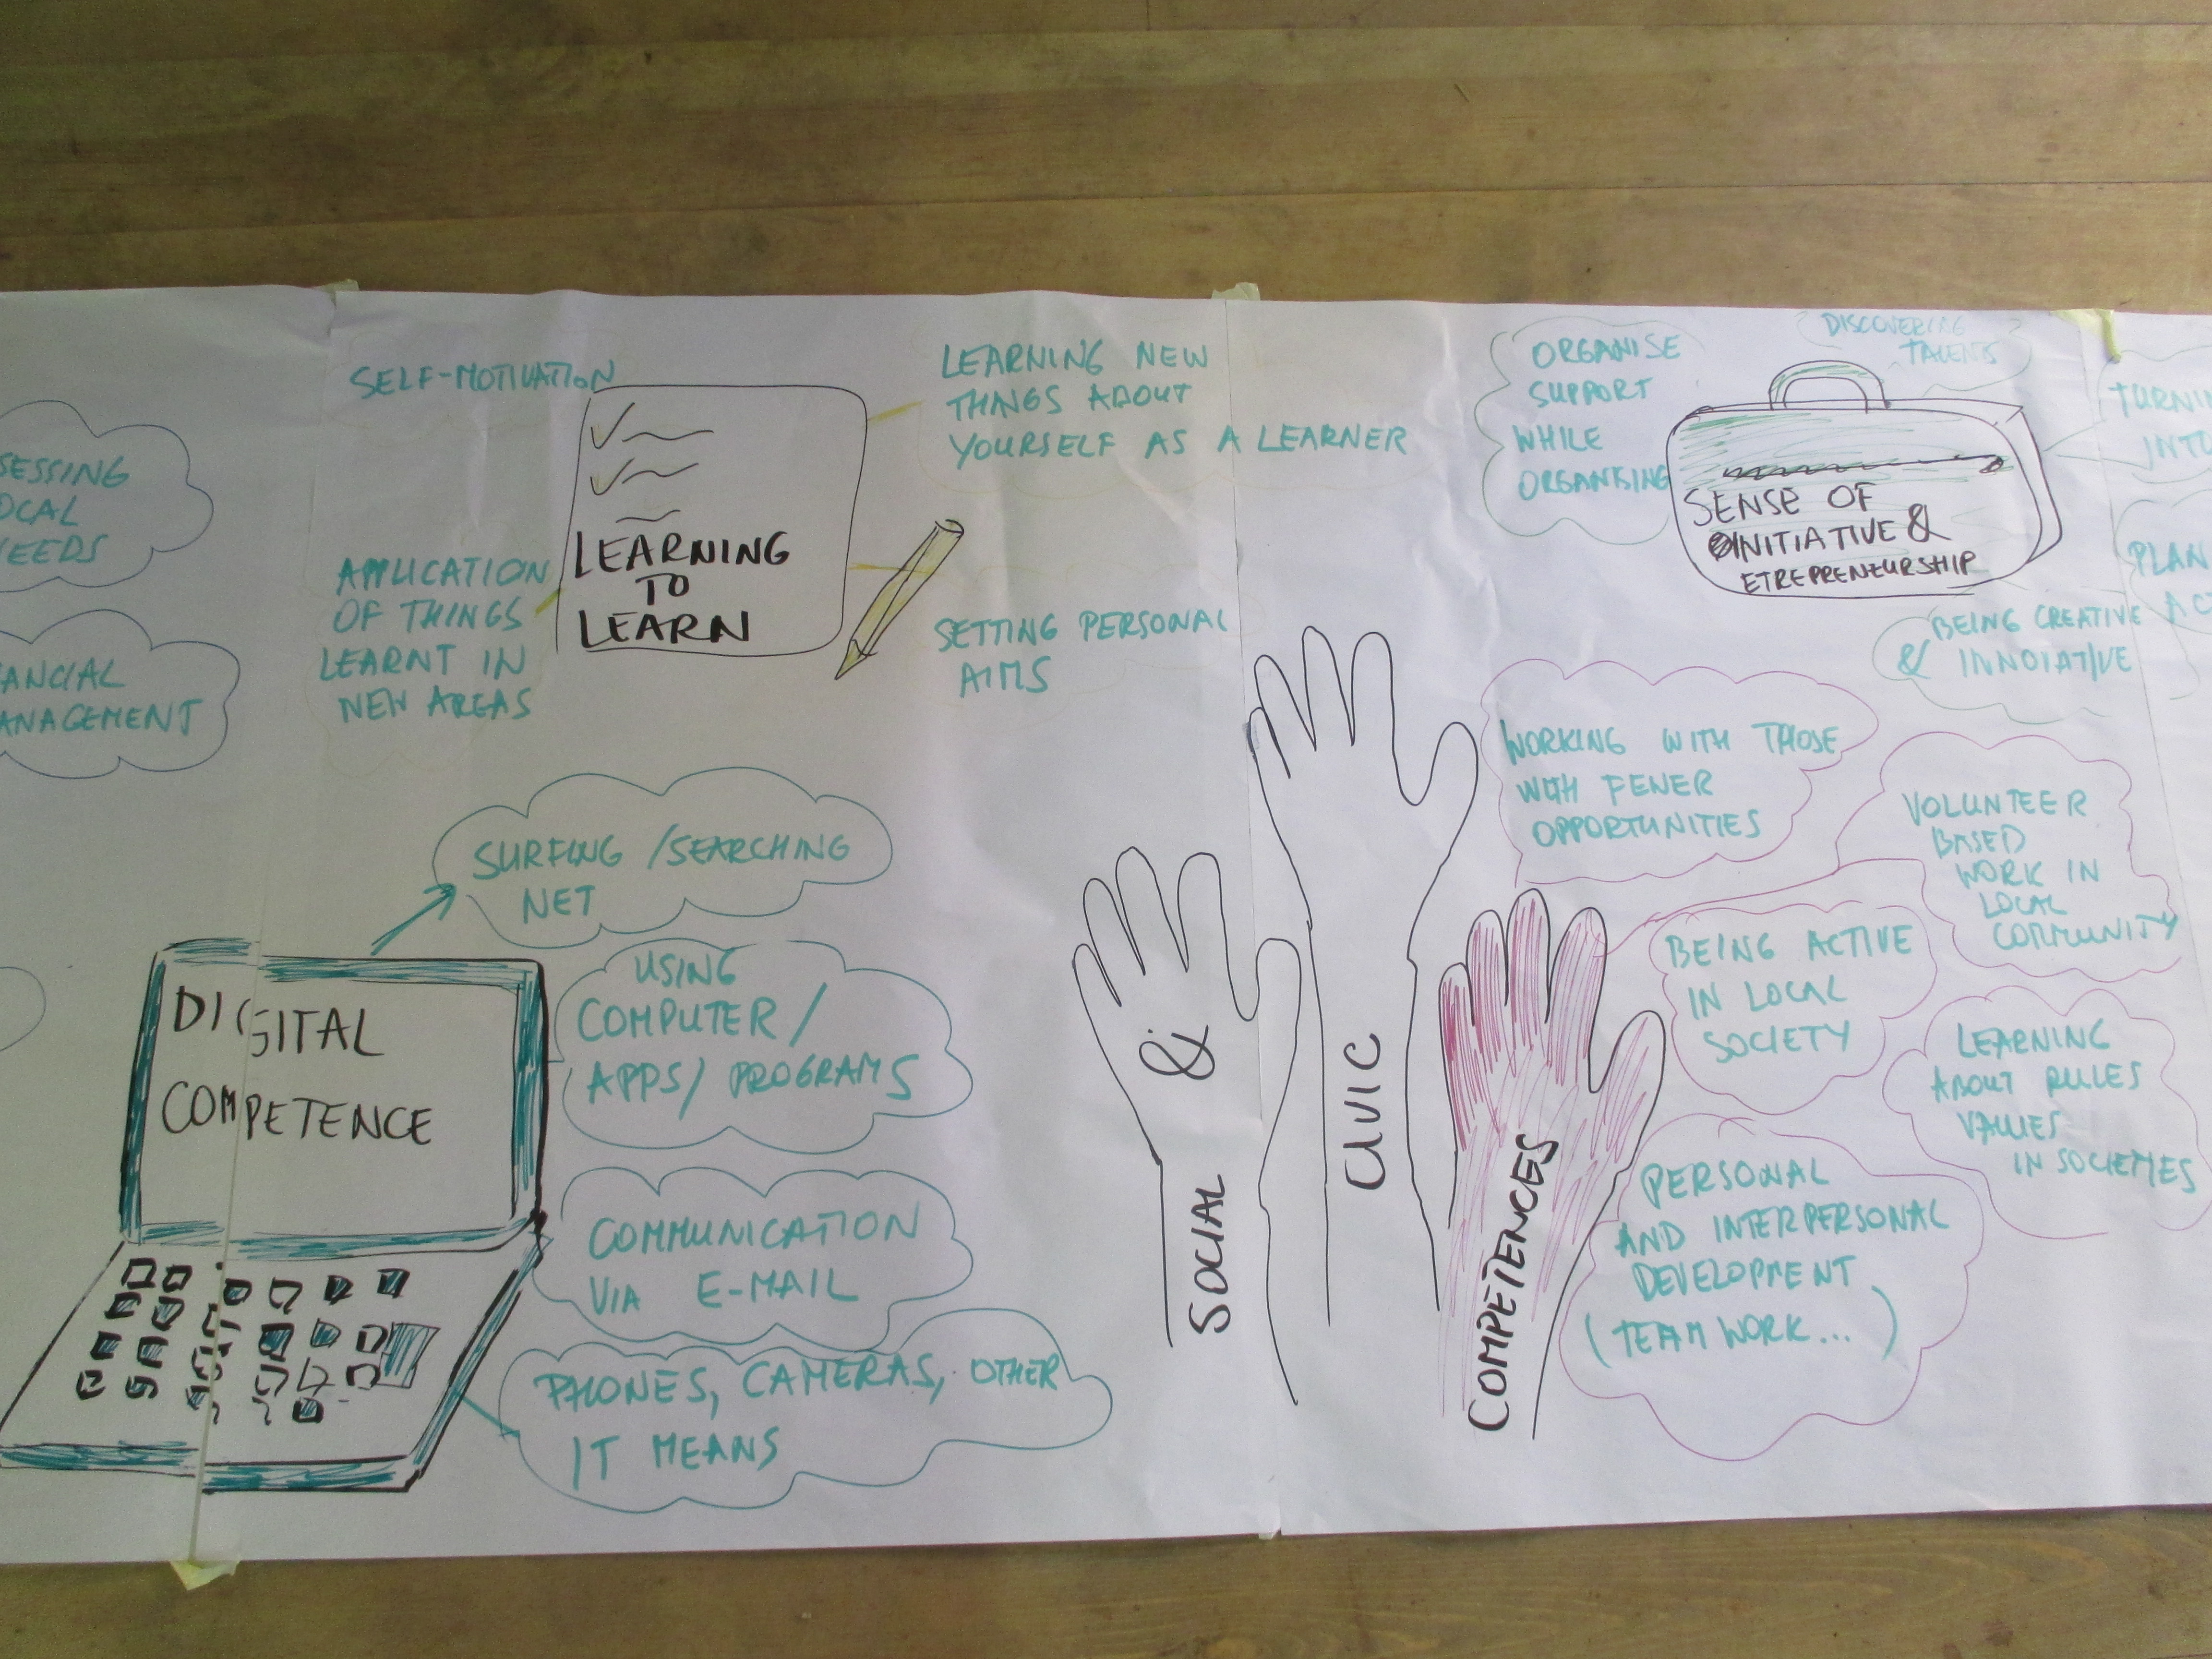 SELF-MOTIVATION
LEARNING NEW
THINGS ABOUT
YOURSELF AS A LEARNER
LEARNING
TO
LEARN
APPLICATION
OF THINGS
LEARNT IN
NEW AREAS
SETTING PERSONAL
AIMS
SESSING
OCAL
EEDS
ANCIAL
ANAGEMENT
ORGANISE
SUPPORT
WHILE
ORGANISING
DISCOVERING
TALENTS
SENSE OF
INITIATIVE &
ETREPRENEURSHIP
TURNIN
INTO
PLAN
ACT
BEING CREATIVE
& INNOIATIVE
SURFING / SEARCHING
NET
DIGITAL
COMPETENCE
USING
COMPUTER /
APPS/ PROGRAMS
COMMUNICATION
VIA E-MAIL
PHONES, CAMERAS, OTHER
IT MEANS
SOCIAL
&
CIVIC
COMPETENCES
WORKING WITH THOSE
WITH FEWER
OPPORTUNITIES
VOLUNTEER
BASED
WORK IN
LOCAL
COMMUNITY
BEING ACTIVE
IN LOCAL
SOCIETY
LEARNING
ABOUT RULES
VALUES
IN SOCIETIES
PERSONAL
AND INTERPERSONAL
DEVELOPMENT
(TEAM WORK...)